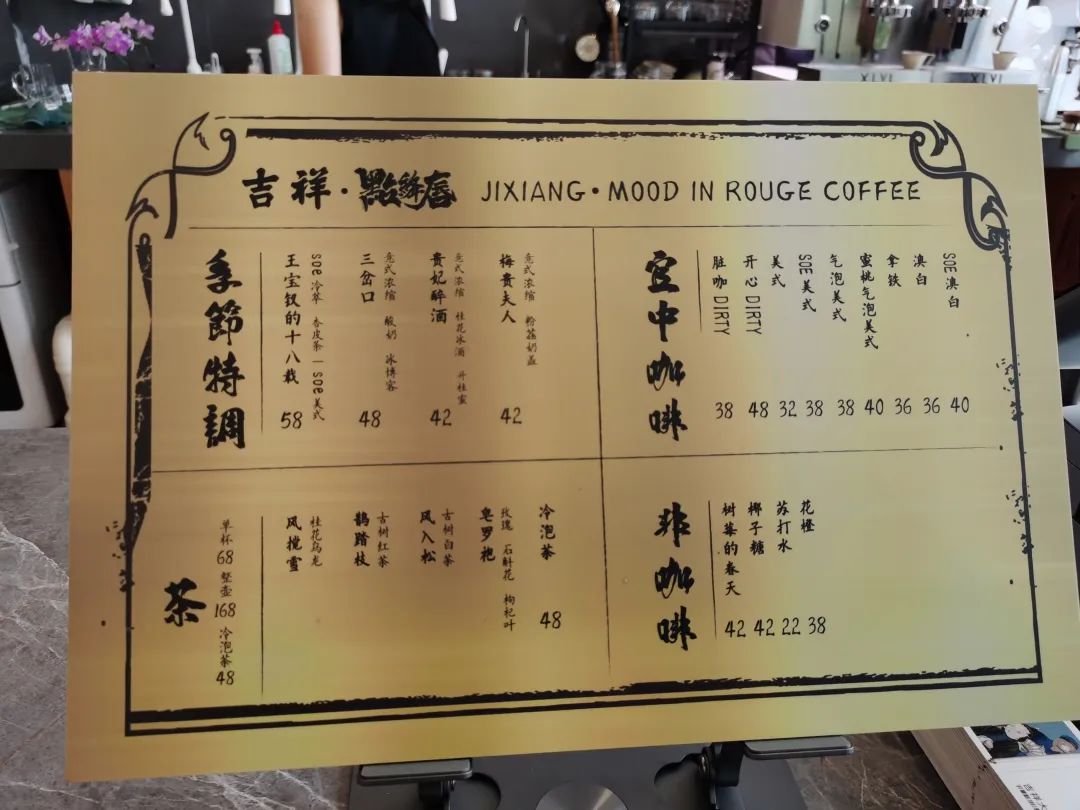 吉祥·點絳唇 JIXIANG·MOOD IN ROUGE COFFEE
季節特調
王宝钗的十八载
SOE冷萃 杏皮茶 | SOE美式
58
三岔口
意式浓缩 酸奶 冰博客
48
贵妃醉酒
意式浓缩 桂花冰酒 丹桂蜜
42
梅贵夫人
意式浓缩 粉荔奶盖
42
宫中咖啡
脏咖 DIRTY
38
开心 DIRTY
48
美式
32
SOE美式
38
气泡美式
38
蜜桃气泡美式
40
拿铁
36
澳白
36
SOE澳白
40
茶
单杯 68 整壶 168 冷泡茶 48
风搅雪
桂花乌龙
鹊踏枝
古树红茶
风入松
古树白茶
皂罗袍
玫瑰 石斛花 枸杞叶
冷泡茶
48
非咖啡
树莓的春天
42
椰子糖
42
苏打水
22
花橙
38
XLVI
XLVI